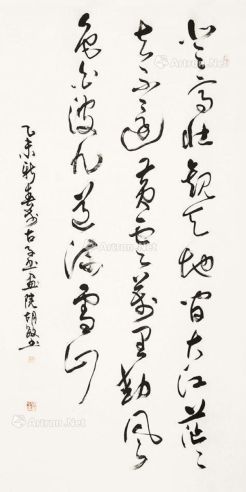 登高壮观天地间大江茫茫
去不还黄云万里动风
色白波九道流雪山
乙未新春于古吾画院胡敏书